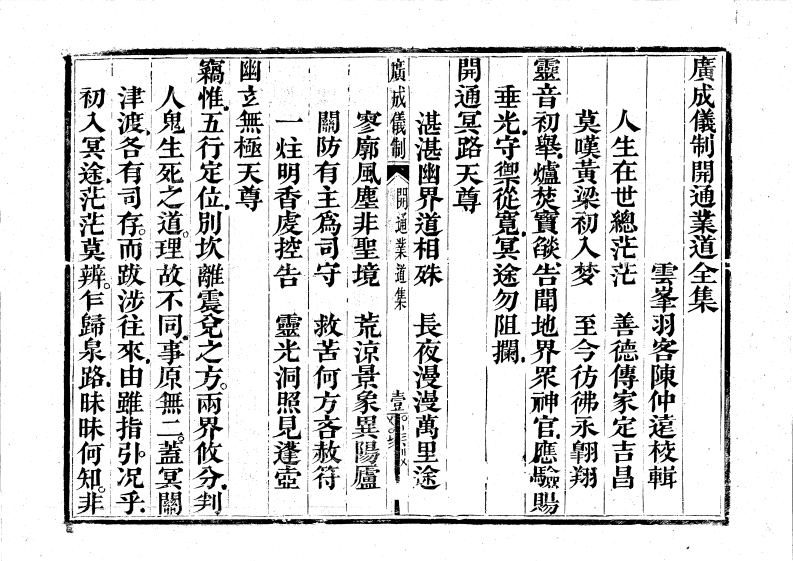 廣成儀制開通業道全集
雲峯羽客陳仲遠校輯
人生在世總茫茫　善德傳家定吉昌
莫嘆黃梁初入梦　至今彷彿永翱翔
靈音初舉爐焚寶燄告聞地界眾神官應驗賜
垂光守禦從寬冥途勿阻攔
開通冥路天尊
湛湛幽界道相殊　長夜漫漫萬里途
廣成儀制　開通業道集　壹
寥廓風塵非聖境　荒涼景象異陽廬
關防有主爲司守　救苦何方吝赦符
一炷明香虔控告　靈光洞照見蓬壺
幽玄無極天尊
竊惟五行定位別坎離震兌之方兩界攸分判
人鬼生死之道理故不同事原無二蓋冥關
津渡各有司存而跋涉往來由雖指引况乎
初入冥途茫茫莫辨乍歸泉路昧昧何知非